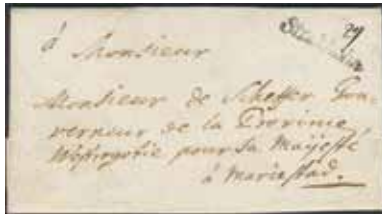 29
à Monsieur
Monsieur de Scheffer Gou-
verneur de la Province
Westrogotie pour Sa Majesté
à Mariestad.